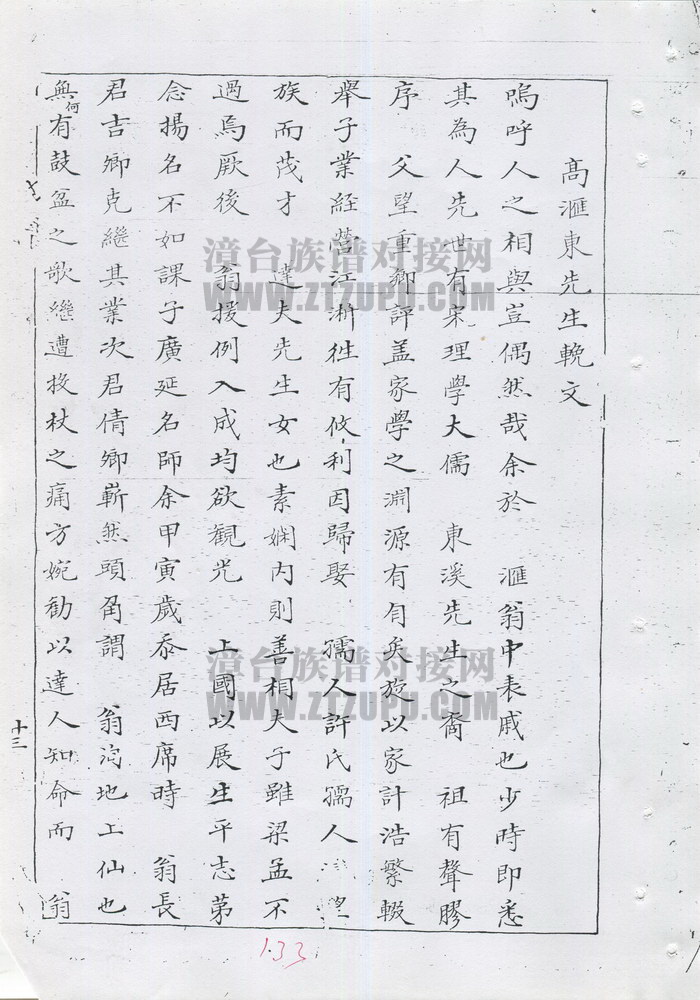 高滙東先生輓文
嗚呼人之相與豈偶然哉余於　滙翁中表戚也少時即悉
其為人先世有宋理學大儒　東溪先生之裔　祖有聲膠
序　父望重鄉評盖家學之淵源有自矣旋以家計浩繁輟
舉子業經營江浙徃有攸利因歸娶　孺人許氏孺人　望
族而茂才　達夫先生女也素嫻內則善相夫子雖梁孟不
過焉厥後　翁援例入成均欲観光　上國以展生平志第
念揚名不如課子廣延名師余甲寅歲忝居西席時　翁長
君吉卿克継其業次君倩卿嶄然頭角謂　翁洵地上仙也
無何有鼓盆之歌継遭投杖之痛方婉勸以達人知命而　翁
十三
133
漳台族谱对接网
WWW.ZTZUPU.COM
漳台族谱对接网
WWW.ZTZUPU.COM